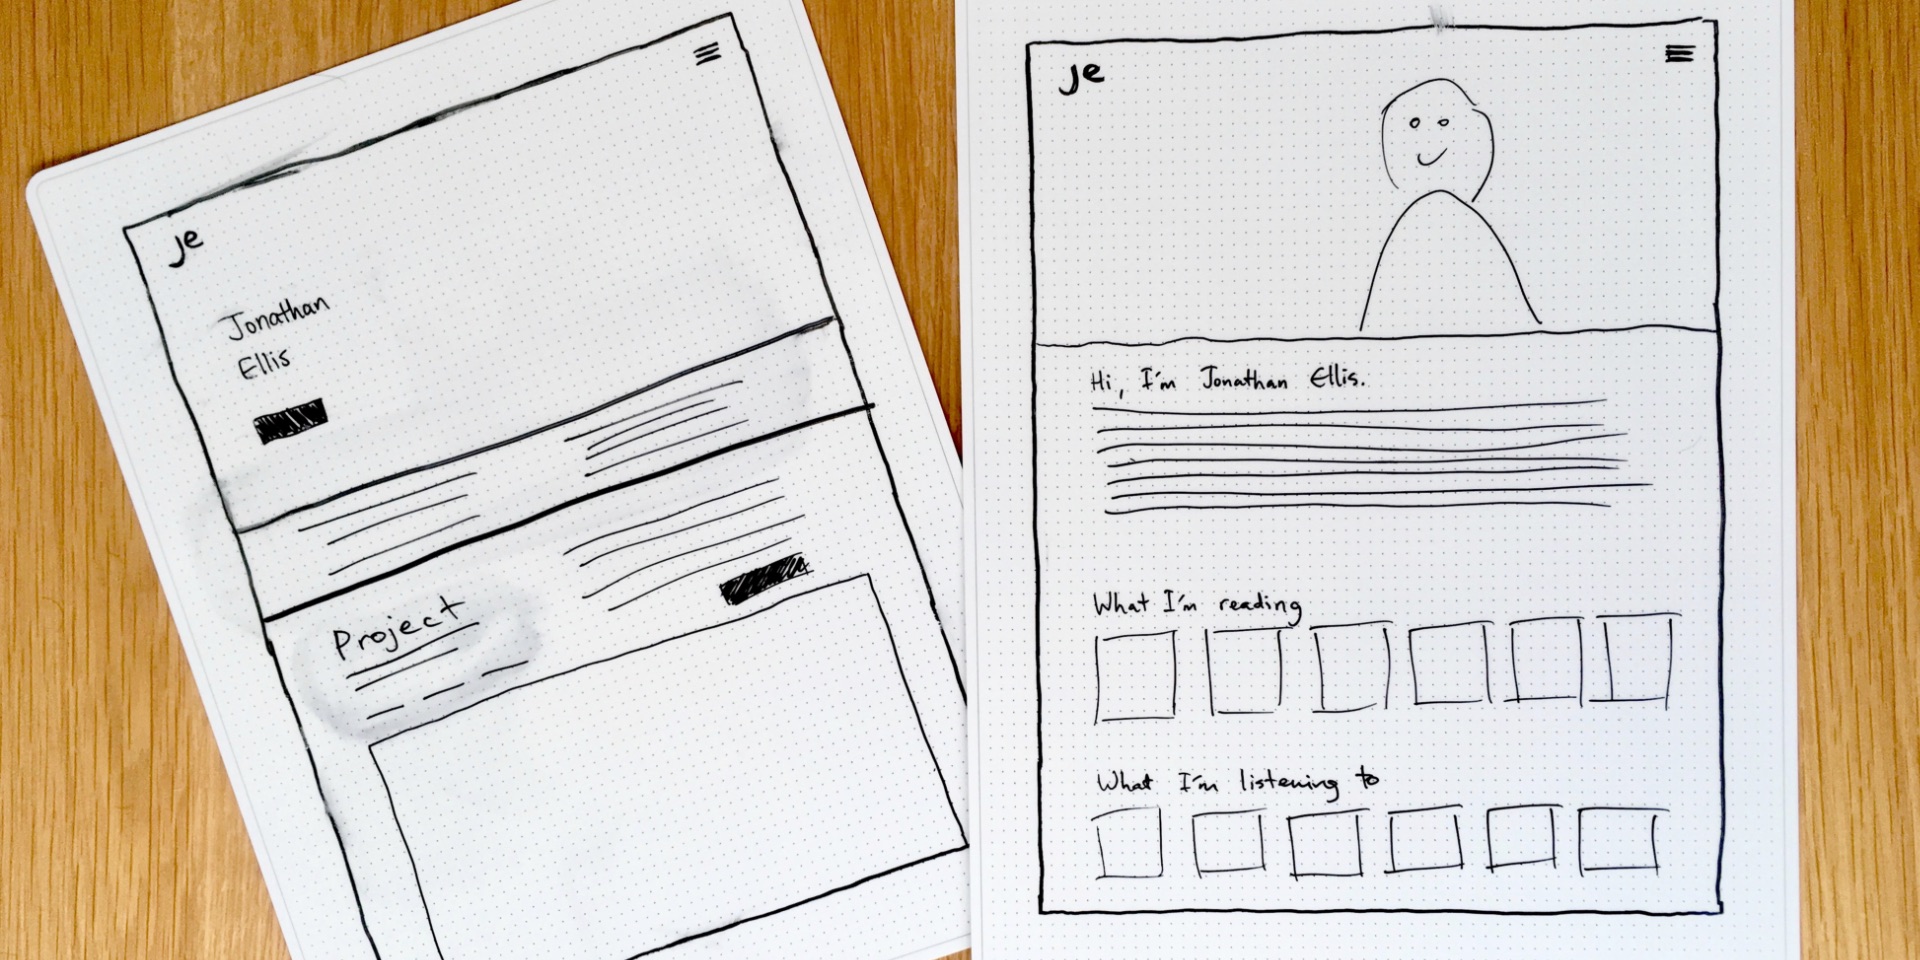 je
Jonathan
Ellis
Project
je
Hi, I'm Jonathan Ellis.
What I'm reading
What I'm listening to